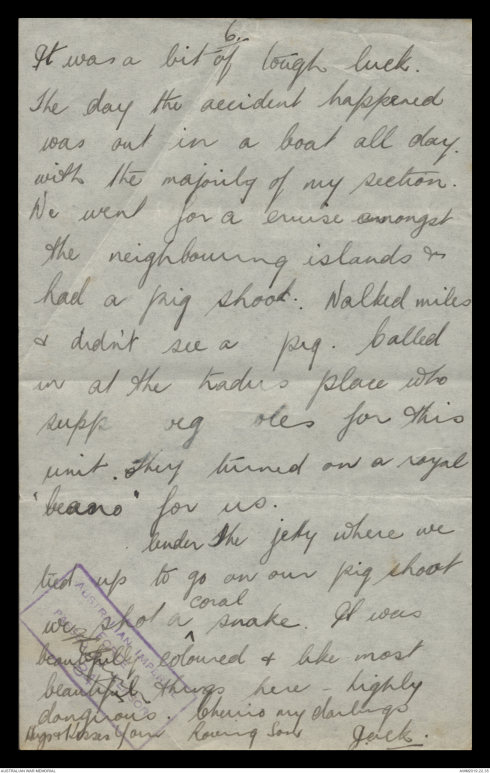 6.
It was a bit of tough luck.
The day the accident happened
was out in a boat all day.
with the majority of my section.
We went for a cruise amongst
the neighbouring islands &
had a pig shoot. Walked miles
& didn't see a pig. Called
in at the traders place who
supp veg oles for this
unit. They turned on a royal
"beano" for us.
Under the jetty where we
tied up to go on our pig shoot
we shot a coral snake. It was
beautifully coloured & like most
beautiful things here - highly
dangerous. Cheerio my darlings
Hugs & kisses Your Loving Son Jack.
AUSTRALIAN IMPERIAL
AUSTRALIAN WAR MEMORIAL